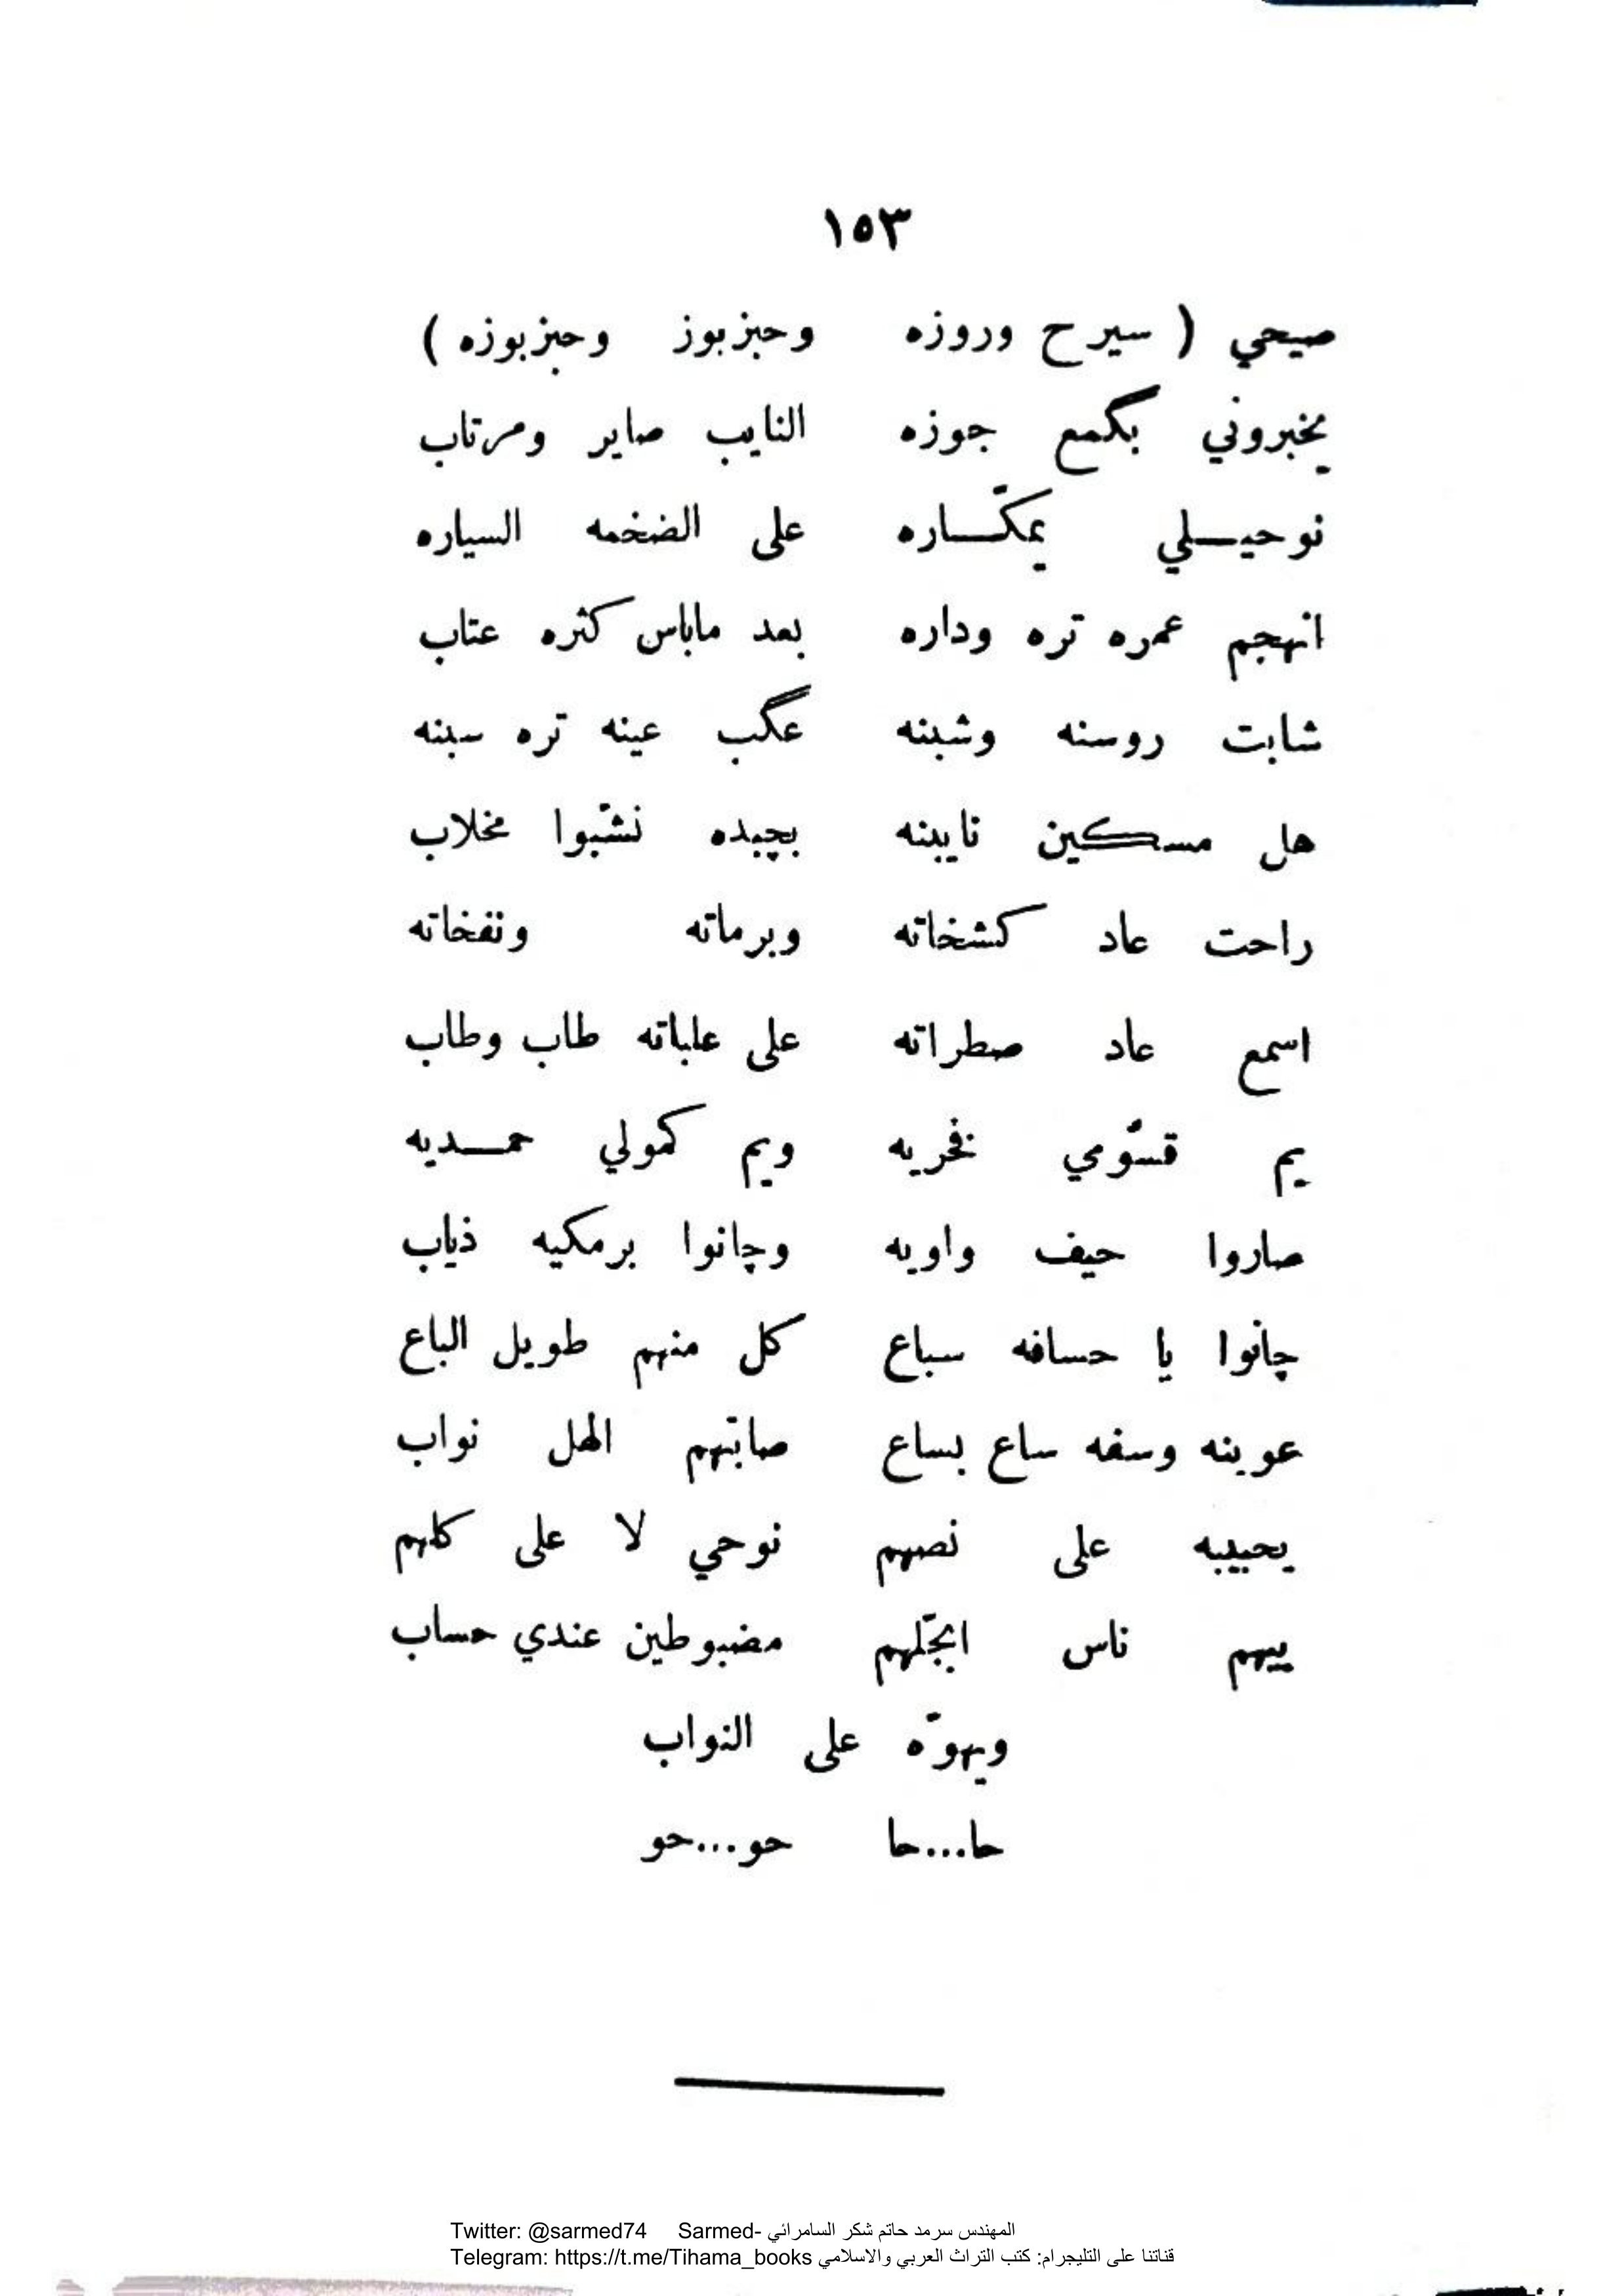 ١٥٣
صيحي ( سيرح وروزه وحبزبوز وحبزبوزه )
يخبروني بگمع جوزه النايب صاير ومرتاب
نوحيلي يمكّاره على الضخمه السياره
انهجم عمره تره وداره بعد ماباس كثره عتاب
شابت روسنه وشبنه عگب عينه تره سبنه
هل مسكين نايبنه بچبده نشّبوا مخلاب
راحت عاد كشخاته وبرماته ونفخاته
اسمع عاد صطراته على علباته طاب وطاب
يم قسّومي فخريه ويم كمولي حمديه
صاروا حيف واويه وچانوا برمكيه ذياب
چانوا يا حسافه سباع كل منهم طويل الباع
عوينه وسفه ساع بساع صابتهم الهل نواب
يحبيبه على نصهم نوحي لا على كلهم
بيهم ناس ابجّلهم مضبوطين عندي حساب
ويهوّه على النواب
حا...حا حو...حو
Twitter: @sarmed74 Sarmed- المهندس سرمد حاتم شكر السامرائي
Telegram: https://t.me/Tihama_books قناتنا على التليجرام: كتب التراث العربي والاسلامي